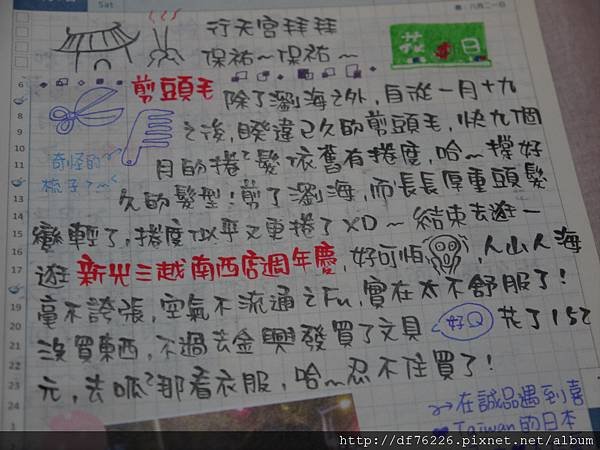 Sat
行天宮拜拜
保祐~保祐~
花 日
剪頭毛 除了瀏海之外,自從一月十九
之後,睽違已久的剪頭毛,快九個
奇怪的
梳子?
月的捲髮依舊有捲度,哈~撐好
久的髮型!剪了瀏海,而長長厚重頭髮
變輕了,捲度似乎又更捲了XD~結束去逛一
逛 新光三越南西店週年慶,好可怕 ,人山人海
毫不誇張,空氣不流通之Fu,實在太不舒服了!
沒買東西,不過去金興發買了文具 好Q 花了152
元,去呱 那看衣服,哈~忍不住買了!
在誠品遇到喜
Taiwan的日本
6
7
8
9
10
11
12
13
14
15
16
17
18
19
20
21
22
23
24
http://df76226.pixnet.net/album